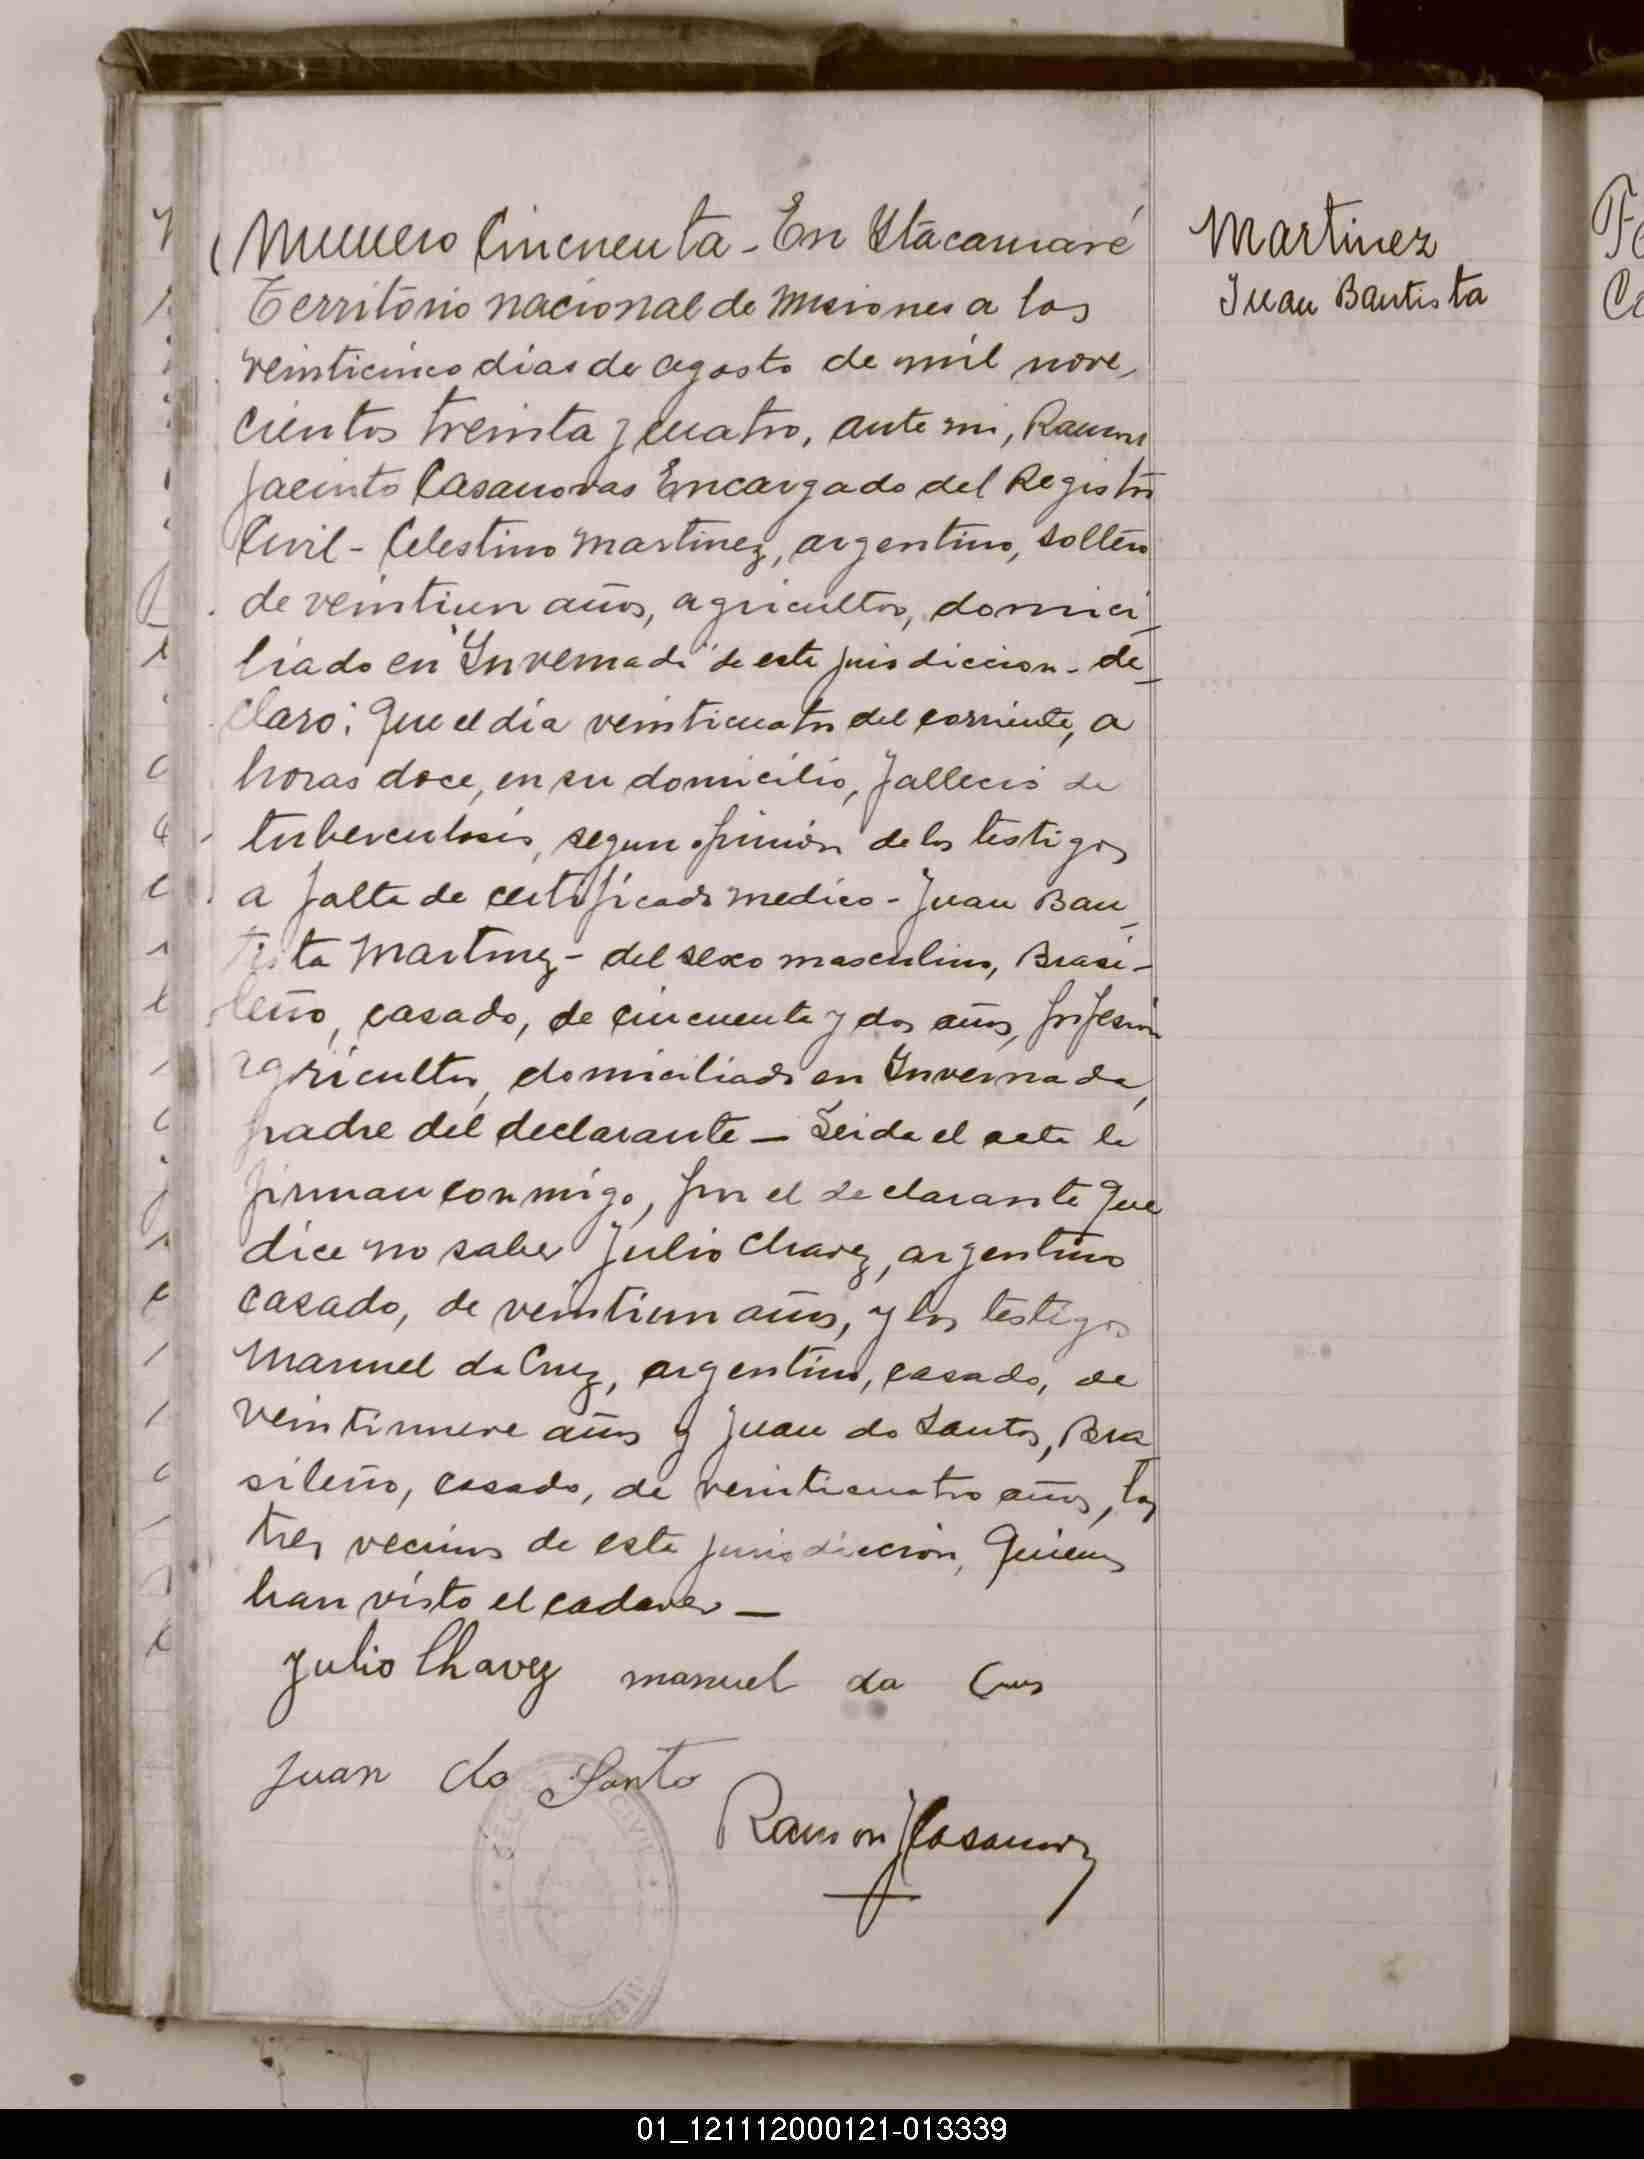 Numero Cincuenta - En Itacaruaré
Territorio nacional de Misiones a los
veinticinco dias de agosto de mil nove-
cientos treinta y cuatro, ante mi, Ramon
Jacinto Casanovas Encargado del Registro
Civil - Celestino Martinez, argentino, soltero
de veintiun años, agricultor, domici-
liado en "Invernada" de esta jurisdiccion - de-
claro: Que el día veinticuatro del corriente, a
horas doce, en su domicilio, fallecio de
tuberculosis, segun opinión de los testigos
a falta de certificado medico - Juan Bau-
tista Martinez - del sexo masculino, Brasi-
leño, casado, de cincuenta y dos años, profesion
agricultor, domiciliado en Invernada,
padre del declarante - Leida el acta la
firman conmigo, por el declarante que
dice no saber Julio Chavez, argentino
casado, de veintiun años, y los testigos
Manuel da Cruz, argentino, casado, de
veintinueve años y Juan do Santos, Bra
sileño, casado, de veinticuatro años, los
tres vecinos de esta jurisdicción, quienes
han visto el cadaver -
Julio Chavez manuel da Crus
Juan do Santo
Ramon J Casanovas
CIVIL
Martinez
Juan Bautista
01_121112000121-013339